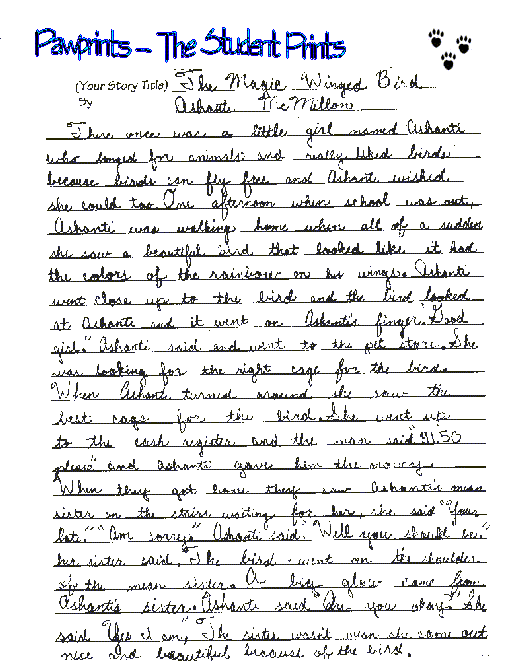 Pawprints – The Student Prints
(Your Story Title) The Magic Winged Bird
By Ashanti McMillon
There once was a little girl named Ashanti
who longed for animals and really liked birds
because birds can fly free and Ashanti wished
she could too. One afternoon when school was out,
Ashanti was walking home when all of a sudden
she saw a beautiful bird that looked like it had
the colors of the rainbow on his wings. Ashanti
went close up to the bird and the bird looked
at Ashanti and it went on Ashanti's finger. "Good
girl." Ashanti said and went to the pet store. She
was looking for the right cage for the bird.
When Ashanti turned around she saw the
best cage for the bird. She went up
to the cash register and the man said "$11.50
please" and Ashanti gave him the money.
When they got home they saw Ashanti's mean
sister on the stairs waiting for her, she said "Your
late." "Am sorry." Ashanti said. "Well you should be."
her sister said. The bird went on the shoulder
of the mean sister. A big glow came from
Ashanti's sister. Ashanti said "Are you okay." She
said "Yes I am," The sister wasn't mean she came out
nice and beautiful because of the bird.